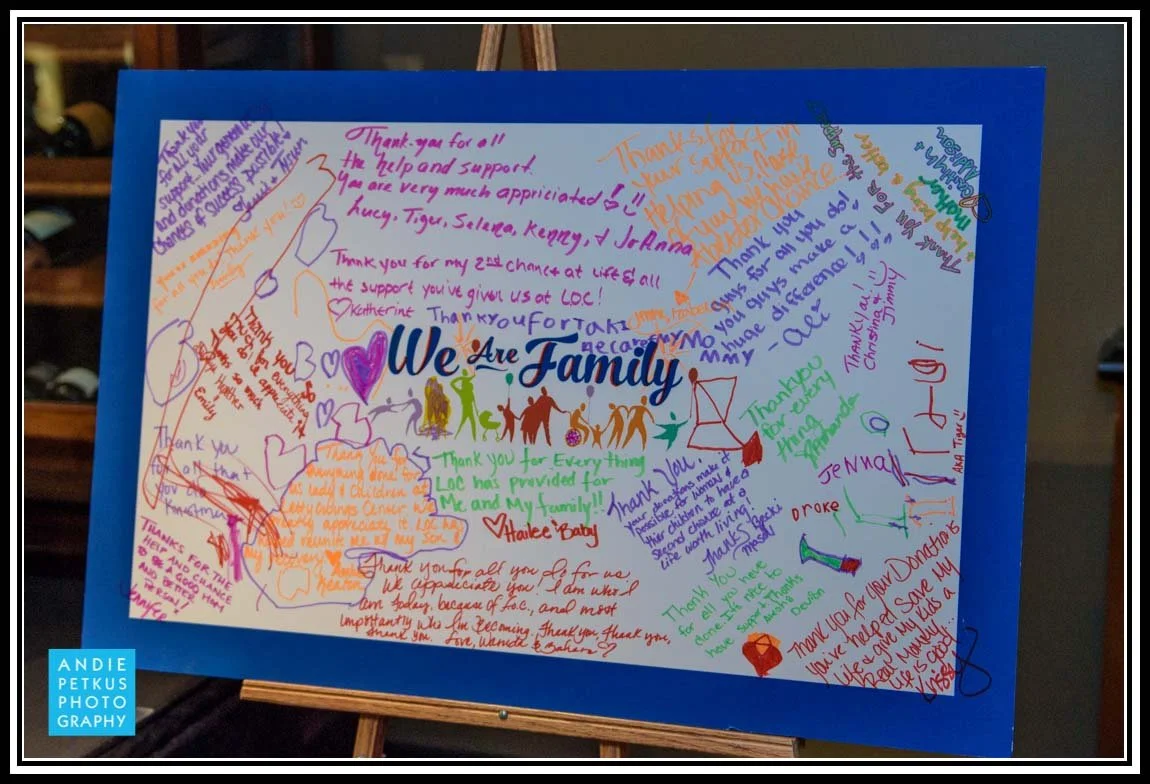 Thank you
for all your
support. Your
and donations make our
chances of success possible!
Thank-you for all
the help and support.
You are very much appriciated!
Lucy, Tiger, Selena, Kenny, & JoAnna
Thanks for
your support in
Helping us. Most
of you
chance
Thank you FOR the support
being a better
mother
Addison
for all you
Thank you!
Thank you for my 2nd chance at life & all
the support you've given us at LOC!
Katherine
Thank you
guys for all you do!
you guys make a
huge difference!!!
-Ali
Thank you For Taki
Mo
mmy
THANK YOU!
Christina &
Jimmy
We Are Family
Thank you so
much for everything
you do. We appreciate it
so much
Heather
Emily!
Thank you
for every
thing
Amanda
Thank you
for all that
you do
Thank you for
everything done for
us lady & children at
Letty Owings Center. We
greatly appreciate it LOC has
helped reunite me w/ my son &
my recovery
Heather
Thank you for Everything
LOC has provided for
Me and My family!!
Hailee Baby
Thank You.
your donations make it
possible for women &
thier children to have a
second chance at a
life worth living!
Thanks Becki
Mason
JeNNa
AKA Tiger
DROKE
THANKS FOR THE
HELP AND CHANCE
TO BE A GOOD MOM
AND BETTER
PERSON!
Jenifer
Thank you for all you do for us,
We appreciate you! I am who I
am today, because of L.O.C., and most
importantly who I'm Becoming. Thank you, Thank you,
Thank you. Love, &
Thank You
for all you have
done. Its nice to
have support Thanks
Devon
Thank you for your Donations
You've helped Save My
Life & give My kids a
Real Mommy...
Life is good
Krissy
ANDIE
PETKUS
PHOTO
GRAPHY